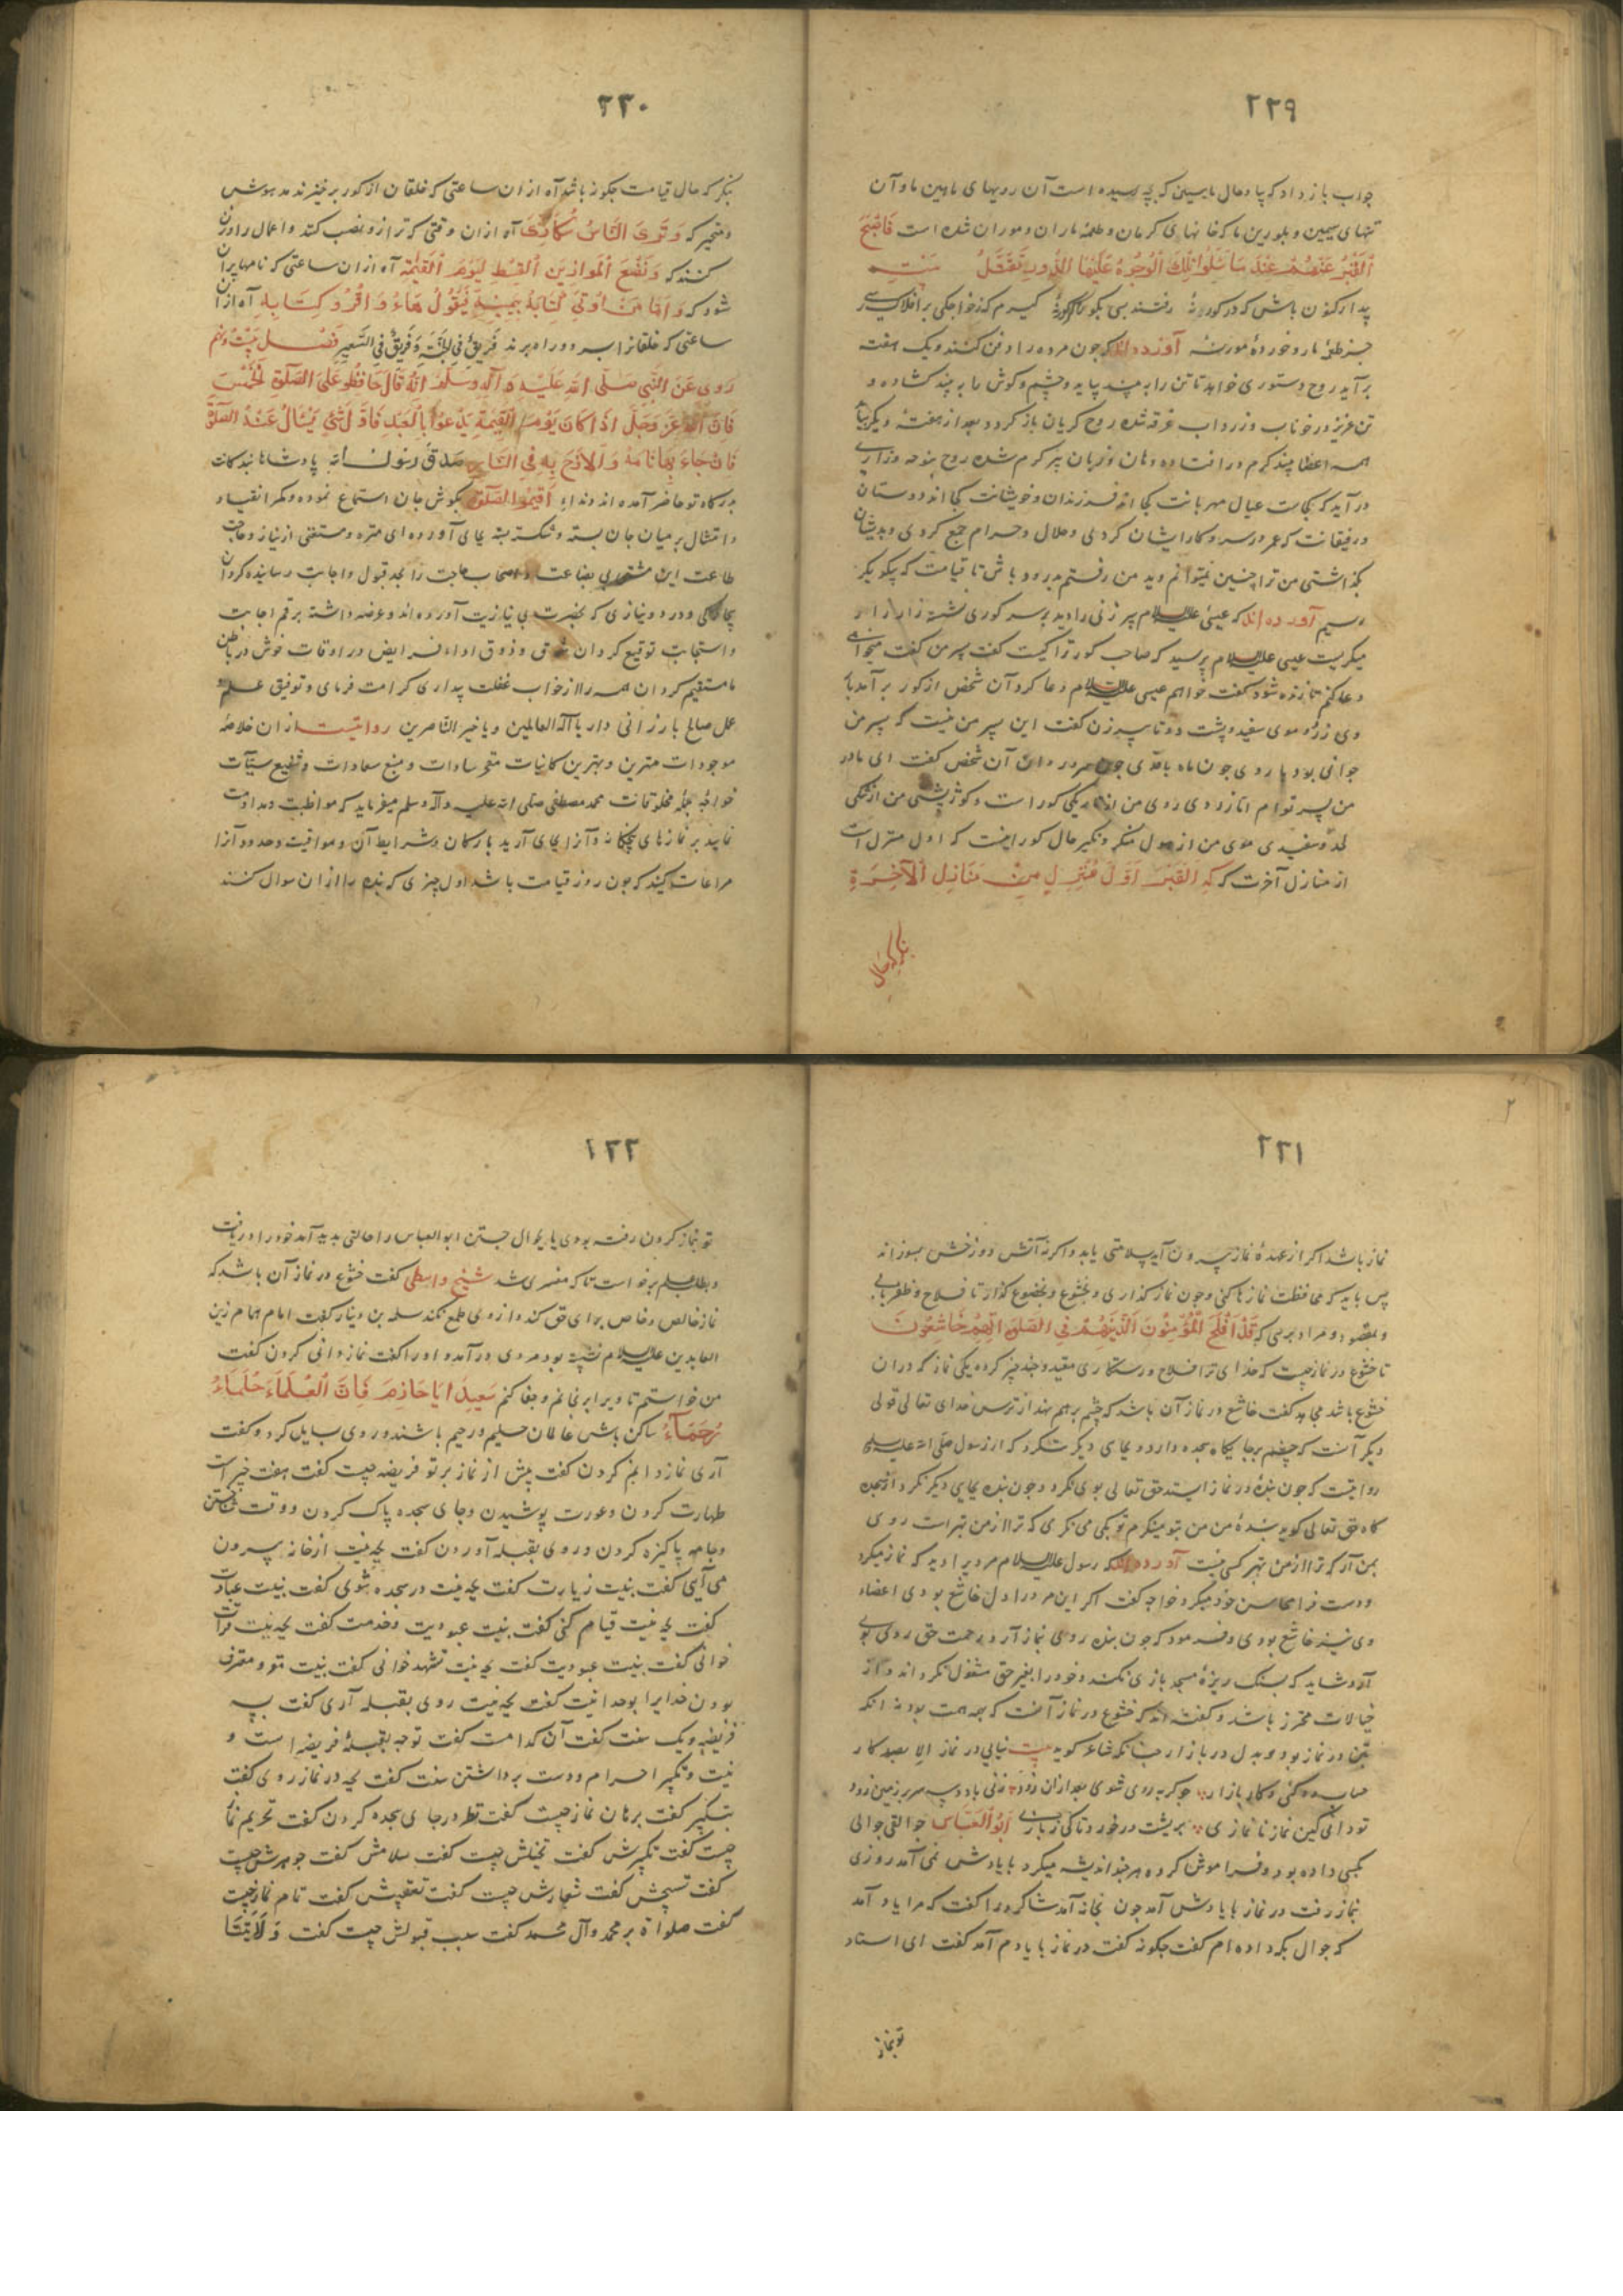 ۲۲۹
جواب باز داد که بیا و حال ما ببین که بچه رسیده است آن رویهای ماهین ما و آن
تنهای سیمین و بلورین ما که خانهای کرمان و طعمهٔ ماران و موران شده است فَاَصْبَحَ
اَلْقَبْرُ عَنْهُمْ عِنْدَ مَا سَئَلُوا تِلْكَ الْوُجُوهُ عَلَيْهَا الدُّودُ تَقْتَتِلُ
بیدار کنون باش که در کور نه رفتند بسی بکو
جز طعمهٔ مار و خوردهٔ مور نه آورده‌اند که چون مرده را دفن کنند و یک هفته
برآید روح دستوری خواهد تا تن را به بیند بیاید و چشم و کوش را به بیند کشاده و
تن عزیز در خوناب و زرداب غرقه شده روح کریان باز کردد بعد از هفتهٔ دیکر بیاید
همه اعضا بیند کرم در افتاده دهان و زبان پر کرم شده روح بنوحه و زاری
در آید که کجاست عیال مهربانت کجااند فرزندان و خویشانت کجااند دوستان
و رفیقانت که عمر در سر و کار ایشان کردی و حلال و حرام جمع کردی و بدیشان
بگذاشتی من ترا چنین نمیتوانم دید من رفتم بدرود باش تا قیامت که بیکدیکر
رسیم آورده‌اند که عیسی علیه السلام پیر زنی را دید بر سر کوری نشسته زار زار
میکریست عیسی علیه السلام پرسید که صاحب کور ترا کیست کفت پسر من کفت میخواهی
دعا کنم تا زنده شود کفت خواهم عیسی علیه السلام دعا کرد آن شخص از کور برآمد با
روی زرد و موی سفید و پشت دوتا پیر زن کفت این پسر من نیست که پسر من
جوانی بود با روی چون ماه با قدی چون سرو روان آن شخص کفت ای مادر
من پسر توام اما زردی روی من از تاریکی کور است و کوژ پشتی من از تنکی
لحد و سفیدی موی من از هول منکر و نکیر حال کور اینست که اول منزل است
از منازل آخرت که اِنَّ الْقَبْرَ اَوَّلُ مَنْزِلٍ مِنْ مَنَازِلِ الْآخِرَةِ
بنکر که حال
۲۳۰
بنکر که حال قیامت چکونه باشد آه از آن ساعتی که خلقان از کور برخیزند مدهوش
و متحیر که وَتَرَى النَّاسَ سُكَارَى آه از آن وقتی که ترازو نصب کنند و اعمال را وزن
کنند که وَنَضَعُ الْمَوَازِينَ الْقِسْطَ لِيَوْمِ الْقِيٰمَةِ آه از آن ساعتی که نامها پران
شود که وَاَمَّا مَنْ اُوتِيَ كِتَابَهُ بِيَمِينِهِ فَيَقُولُ هَاؤُمُ اقْرَؤُا كِتَابِيَهْ آه از آن
ساعتی که خلقانرا بر دو راه برند فَرِيقٌ فِي الْجَنَّةِ وَفَرِيقٌ فِي السَّعِيرِ فصل بیست و نهم
رُوِيَ عَنِ النَّبِيِّ صَلَّى اللهُ عَلَيْهِ وَآلِهِ وَسَلَّمَ اَنَّهُ قَالَ حَافِظُوا عَلَى الصَّلَوةِ الْخَمْسِ
فَاِنَّ اللهَ عَزَّ وَجَلَّ اِذَا كَانَ يَوْمَ الْقِيٰمَةِ يَدْعُوا بِالْعَبْدِ فَاَوَّلُ شَيْءٍ يُسْأَلُ عَنْهُ الصَّلَوةُ
فَاِنْ جَاءَ بِهَا تَامَّةً وَاِلَّا زُخَّ بِهِ فِي النَّارِ صَدَقَ رَسُولُ اللهِ پادشاها بندکانت
بدرکاه تو حاضر آمده‌اند و ندای اَقِيمُوا الصَّلَوةَ بکوش جان استماع نموده و کمر انقیاد و
و امتثال بر میان جان بسته و شکسته بسته بجای آورده ای منزه و مستغنی از نیاز و حاجت
طاعت این مشتی بی بضاعت و اصحاب حاجت را بمحل قبول و اجابت رسانیده کردان
بیچارکی و درد و نیازی که بحضرت بی نیازیت آورده‌اند و عرضه داشته برقم اجابت
و استجابت توقیع کردان شوق و ذوق اداء فرایض در اوقات خوش در باطن
ما مستقیم کردان همه را از خواب غفلت بیداری کرامت فرمای و توفیق علم و
عمل صالح بارزانی دار یا اله العالمین و یا خیر الناصرین روایتست از آن خلاصهٔ
موجودات مهترین و بهترین کاینات مفخر سادات و منبع سعادات و شفیع سیئات
خواجهٔ جمله مخلوقات محمد مصطفی صلی الله علیه وآله وسلم میفرماید که مواظبت و مداومت
نمایید بر نمازهای پنجکانه و آنرا بجای آرید با ارکان و شرایط آن و مواقیت و حدود آنرا
مراعات کنید که چون روز قیامت باشد اول چیزی که بنده را از آن سوال کنند
۲۳۱
نماز باشد اگر از عهدهٔ نماز بیرون آید سلامتی یابد و اکر نه آتش دوزخش بسوزاند
پس باید که محافظت نمازها کنی و چون نماز کذاری و بخشوع و بخضوع کذار تا فلاح و ظفر یابی
و بمقصود و مراد برسی که قَدْ اَفْلَحَ الْمُؤْمِنُونَ اَلَّذِينَ هُمْ فِي الصَّلَوتِهِمْ خَاشِعُونَ
تا خشوع در نماز چیست که خدای ترا فلاح و رستکاری مقید و بچند چیز کرده یکی نماز که در آن
خشوع باشد مجاهد کفت خاشع در نماز آن باشد که چشم بر هم نهد از ترس خدای تعالی قولی
دیکر آنست که چشم بر جایگاه سجده دارد و بجای دیکر ننکرد که از رسول صلی الله علیه وسلم
روایتست که چون بنده در نماز ایستد حق تعالی بوی نکرد و چون بنده بجایی دیکر نکرد از سجده
کاه حق تعالی کوید بندهٔ من من بتو مینکرم تو بکی می نکری که ترا از من بهتر است روی
بمن آر که ترا از من بهتر کسی نیست آورده‌اند که رسول علیه السلام مردیرا دید که نماز میکرد
و دست فرا محاسن خود میکرد خواجه کفت اکر این مرد را دل خاشع بودی اعضاء
وی نیز خاشع بودی و فرمود که چون بنده روی بنماز آرد رحمت حق روی بوی
آرد و نشاید که بسنک ریزهٔ مسجد بازی نکند و خود را بغیر حق مشغول نکرداند و از
خیالات محترز باشد و کفته‌اند که خشوع در نماز آنست که همه همت بود نه آنکه
بتن در نماز بود و بدل در بازار چنانکه شاعر کوید بیت نیایی در نماز الا بصد کار
حساب ده کنی و کار بازار
تو دانی کین نماز نا نمازی ابوالعباس جوالقی جوالی
بکسی داده بود و فراموش کرده هر چند اندیشه میکرد با یادش نمی آمد روزی
نماز رفت در نماز با یادش آمد چون بخانه آمد شاکرد را کفت که مرا یاد آمد
که جوال بکه داده‌ام کفت چکونه کفت در نماز با یادم آمد کفت ای استاد
تو بنماز
۲۳۲
تو بنماز کردن رفته بودی یا بجوال جستن ابوالعباس را حالتی پدید آمد خود را دریافت
و بطلب علم برخواست تا که مفسری شد شیخ واسطی کفت خشوع در نماز آن باشد که
نماز خالص و خاص برای حق کند و از وی طمع نکند سلمه بن دینار کفت امام همام زین
العابدین علیه السلام نشسته بود مردی درآمد و او را کفت نماز دانی کردن کفت
من خواستم تا ویرا برنجانم و جفا کنم سعید اَبَا حَازِمٍ فَاِنَّ الْعُلَمَاءَ حُلَمَاءُ
رُحَمَاءُ ساکن باش عالمان حلیم و رحیم باشند و روی بسایل کرد و کفت
آری نماز دانم کردن کفت پیش از نماز بر تو فریضه چیست کفت هفت چیز است
طهارت کردن و عورت پوشیدن و جای سجده پاک کردن و وقت شناختن
و جامه پاکیزه کردن و روی بقبله آوردن کفت بچه نیت از خانه بیرون
می آیی کفت بنیت زیارت کفت بچه نیت در سجده شوی کفت بنیت عبادت
کفت بچه نیت قیام کنی کفت بنیت عبودیت و خدمت کفت بچه نیت قرآت
خوانی کفت بنیت عبودیت کفت بچه نیت تشهد خوانی کفت بنیت مقر و معترف
بودن خدایرا بوحدانیت کفت بچه نیت روی بقبله آری کفت به
فریضه و یک سنت کفت آن کدامست کفت توجه بقبله فریضه است و
نیت و تکبیر احرام و دست برداشتن سنت کفت بچه در نماز روی کفت
بتکبیر کفت برهان نماز چیست کفت نظر در جای سجده کردن کفت تحریم نماز
چیست کفت تکبیرش کفت تحلیلش چیست کفت سلامش کفت جوهرش چیست
کفت تسبیحش کفت شعارش چیست کفت تعقیبش کفت تمام نماز چیست
کفت صلواة بر محمد و آل محمد کفت سبب قبولش چیست کفت وَلَايَتُنَا